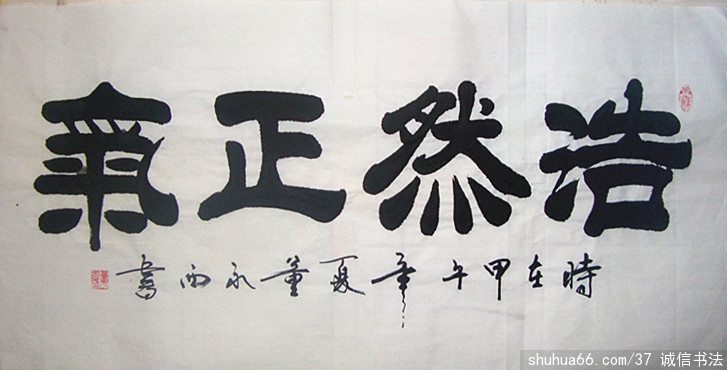 浩然正氣
時在甲午年夏董永西書
shuhua66.com/37 诚信书法